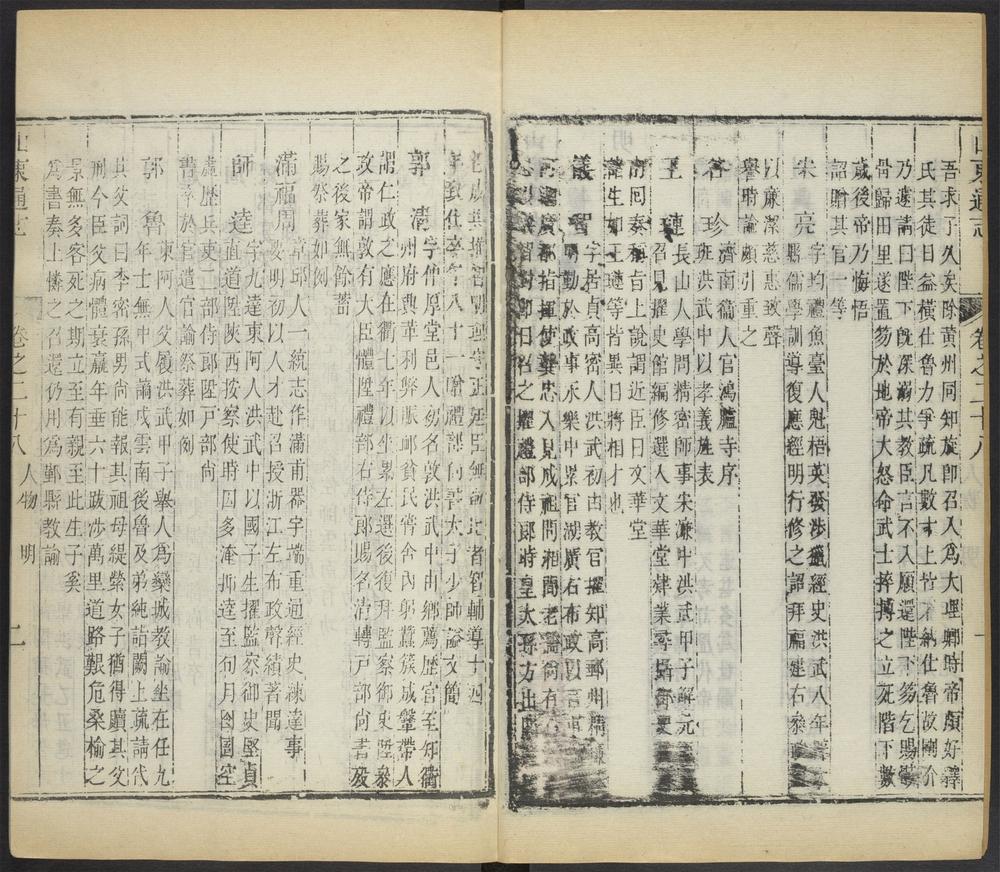 山東通志
卷之二十八
一
吾求子久矣除黃州同知旋卽召入爲大理卿時帝頗好釋
氏其徒日益橫仕魯力爭疏凡數十上竹不納仕魯故剛介
乃遂請曰陛下旣深溺其教臣言不入願還陛下笏乞賜骸
骨歸田里遂置笏於地帝大怒命武士捽搏之立死階下數
歲後帝乃悔悟
詔贈其官一等
宋亮 字均禮魚臺人魁梧英發涉獵經史洪武八年
縣儒學訓導復應經明行修之詔拜福建右參
以廉潔慈惠致聲
譽時論頗引重之
谷珍 濟南衞人官鴻臚寺序
班洪武中以孝義旌表
王璉 長山人學問精密師事宋濂中洪武甲子解元
召見擢史館編修選入文華堂肄業
上說謂近臣曰文華堂
諸生如王璉等皆異日將相才也
儀智 字居貞高密人洪武初由教官擢知高郵州
明勤於政事永樂中累官湖廣右布政
湖廣都指揮使龔忠入見成祖問湘間老儒
對卽日召之擢禮部侍郎時皇太孫方出
智輔導
卒致仕卒年八十一贈太子少師諡文簡
郭清 字仲原堂邑人初名敦洪武中由鄉薦歷官至知衢
州府興革利弊賑卹貧民齊舍內躬蠶簇成繫帶人
謂仁政之應在衢七年以坐累左選後復拜監察御史陞參
政帝謂敦有大臣體陞禮部右侍郎賜名清轉戶部尚書歿
之後家無餘蓄
賜祭葬如例
滿福周 章邱人一統志作滿甫器宇端重通經史諫達事
務明初以人才赴召授浙江左布政聲績著聞
師逵 字九達東阿人洪武中以國子生擢監察御史堅貞
直道陞陝西按察使時囚多淹抑逵至旬月囹圄空
虛歷兵吏二部侍郎陞戶部尚
書卒於官遣官諭祭葬如例
郭魯 東阿人父履洪武甲子舉人爲欒城教諭坐在任九
年士無中式謫戍雲南後魯及弟純詣闕上疏請代
其父詞曰李密孫男尚能報其祖母緹縈女子猶得贖其父
刑今臣父病體衰羸年垂六十跋涉萬里道路艱危桑榆之
景無多客死之期立至有親至此生子奚
爲書奏上憐之召還仍用爲鄞縣教諭
山東通志
卷之二十八 人物 明
二